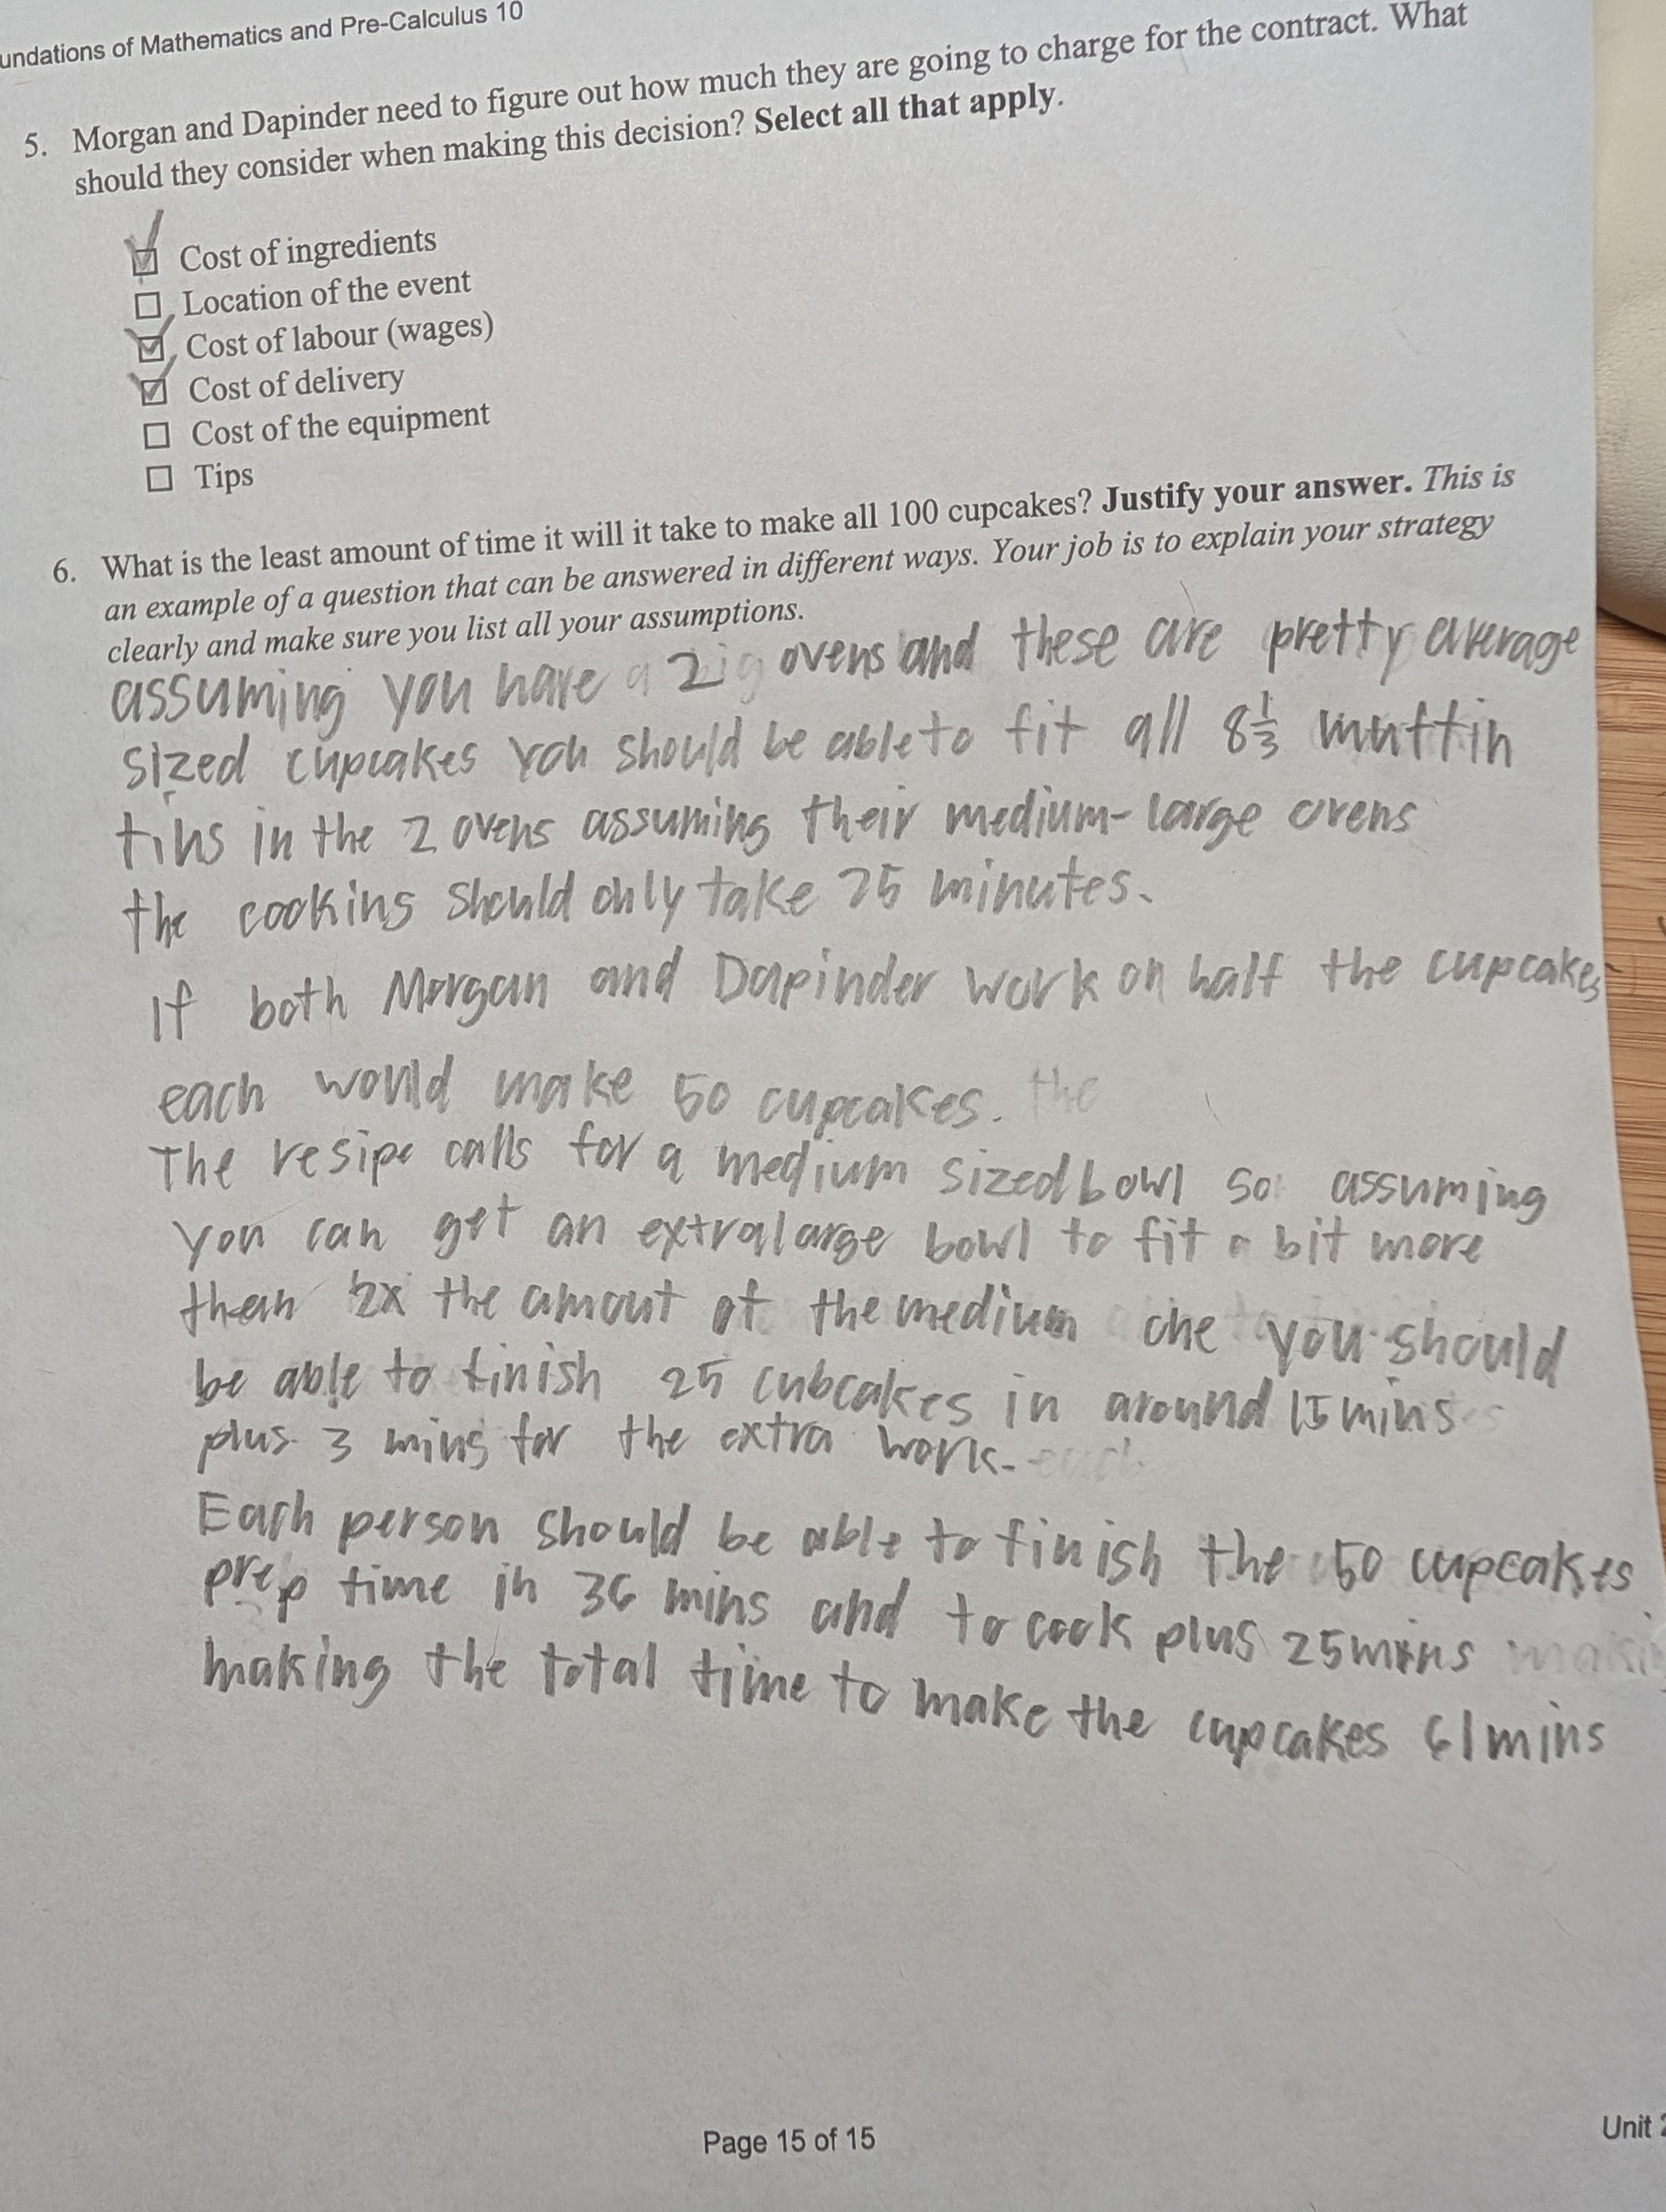 undations of Mathematics and Pre-Calculus 10
5. Morgan and Dapinder need to figure out how much they are going to charge for the contract. What
should they consider when making this decision? Select all that apply.
Cost of ingredients
Location of the event
Cost of labour (wages)
Cost of delivery
Cost of the equipment
Tips
6. What is the least amount of time it will it take to make all 100 cupcakes? Justify your answer. This is
an example of a question that can be answered in different ways. Your job is to explain your strategy
clearly and make sure you list all your assumptions.
assuming you have 2 ovens and these are pretty average
sized cupcakes you should be able to fit all 8 1/3 muffin
tins in the 2 ovens assuming their medium-large ovens
the cooking should only take 25 minutes.
If both Morgan and Dapinder work on half the cupcakes
each would make 50 cupcakes. the
The resipe calls for a medium sized bowl so assuming
you can get an extra large bowl to fit a bit more
then 2x the amout of the medium one you should
be able to finish 25 cubcakes in around 15 mins
plus 3 mins for the extra work.
Each person should be able to finish the 50 cupcakes
prep time in 36 mins and to cook plus 25 mins
making the total time to make the cupcakes 61 mins
Page 15 of 15
Unit 2